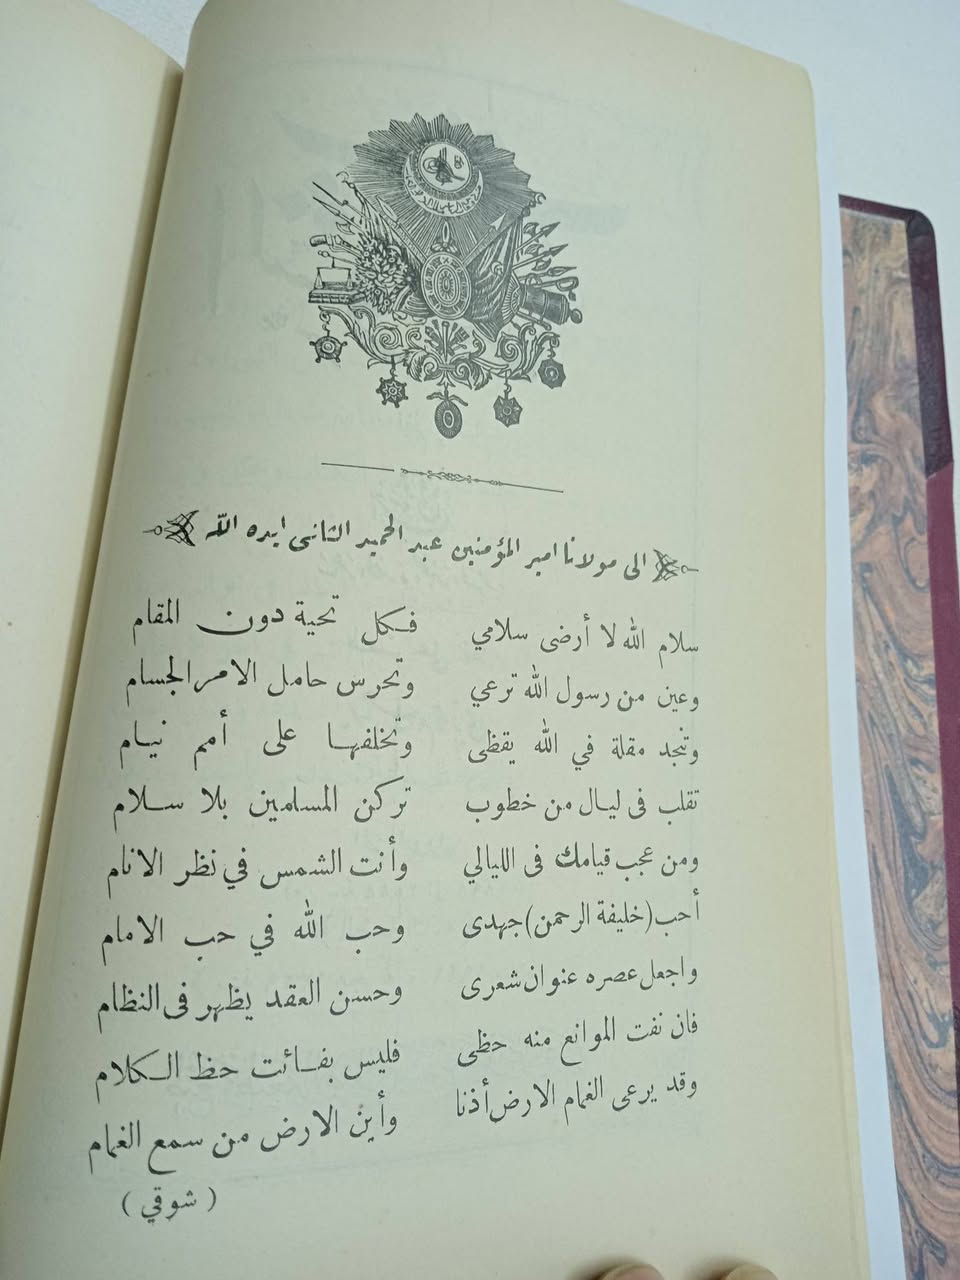 الى مولانا امير المؤمنين عبد الحميد الثانى ايده الله
سلام الله لا أرضى سلامي فكل تحية دون المقام
وعين من رسول الله ترعي وتحرس حامل الامر الجسام
وتنجد مقلة في الله يقظى وتخلفها على أمم نيام
تقلب فى ليال من خطوب تركن المسلمين بلا سلام
ومن عجب قيامك فى الليالي وأنت الشمس في نظر الانام
أحب (خليفة الرحمن) جهدى وحب الله في حب الامام
واجعل عصره عنوان شعرى وحسن العقد يظهر فى النظام
فان نفت الموانع منه حظى فليس بفائت حظ الكلام
وقد يرعى الغمام الارض أذنا وأين الارض من سمع الغمام
( شوقي )